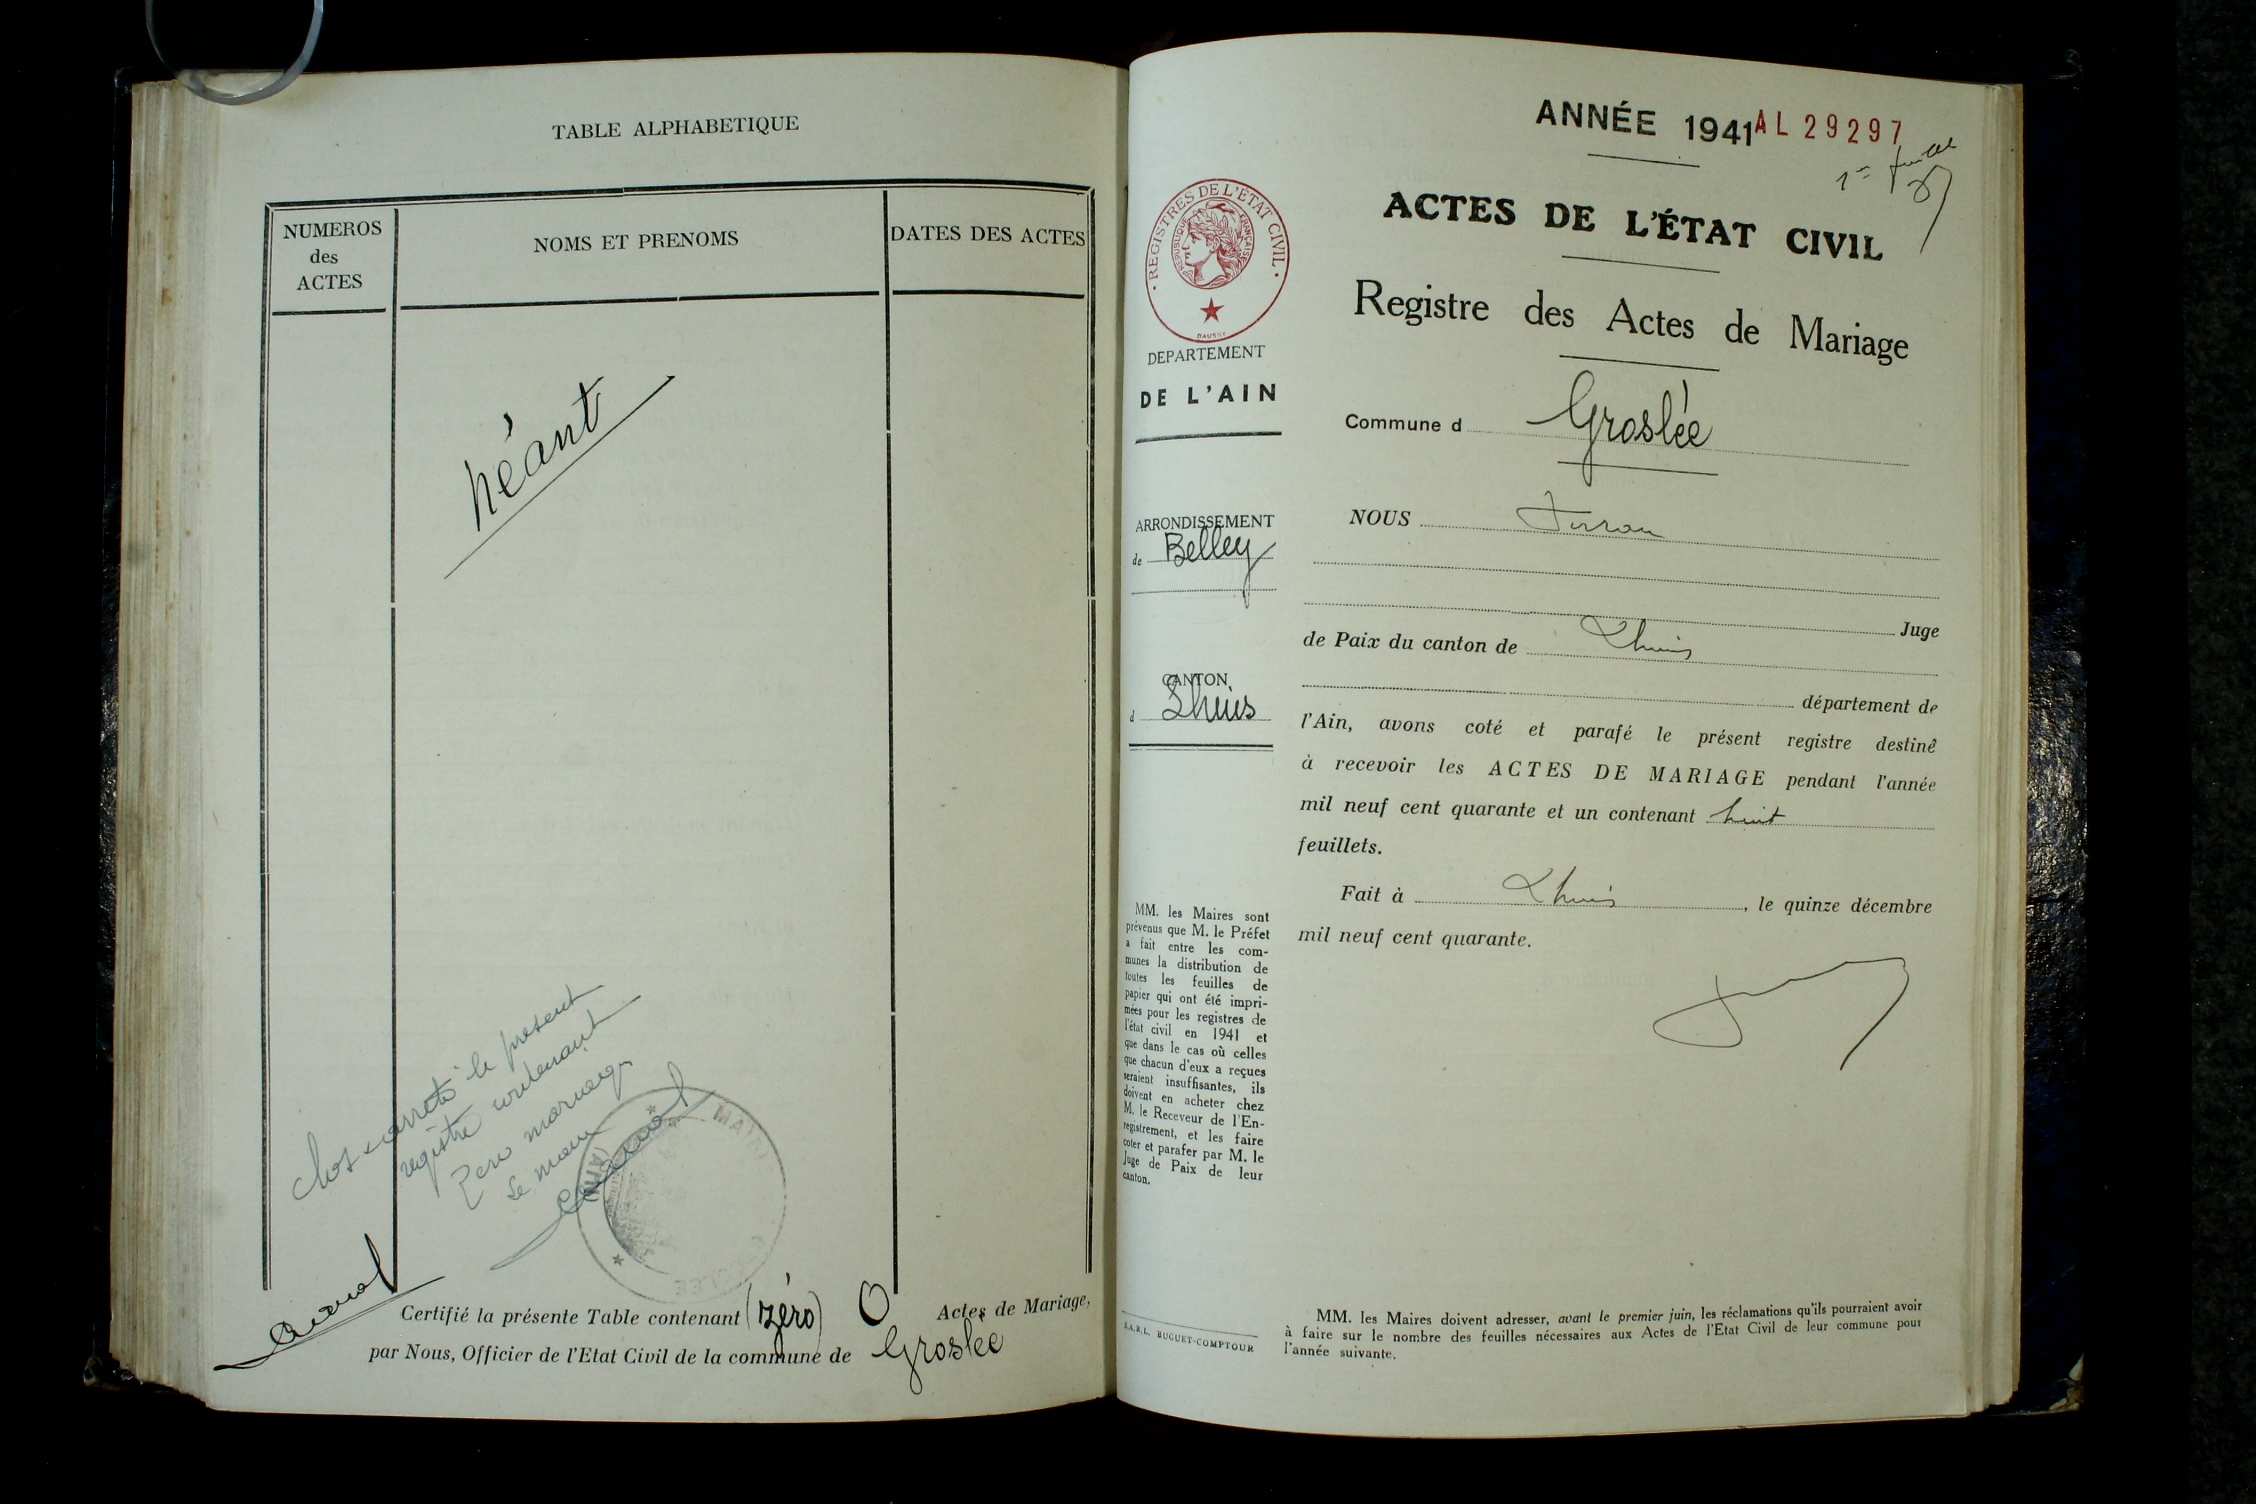 TABLE ALPHABETIQUE
NUMEROS
des
ACTES
NOMS ET PRENOMS
DATES DES ACTES
néant
clos et arrêté le présent
registre contenant
zéro mariage
Le maire
MAIRIE
(AIN)
Certifié la présente Table contenant (zéro) 0 Actes de Mariage,
par Nous, Officier de l'Etat Civil de la commune de Groslée
ANNÉE 1941
AL 29297
ACTES DE L'ÉTAT CIVIL
Registre des Actes de Mariage
Commune d Groslée
NOUS
Juge
de Paix du canton de Lhuis
département de
l'Ain, avons coté et parafé le présent registre destiné
à recevoir les ACTES DE MARIAGE pendant l'année
mil neuf cent quarante et un contenant huit
feuillets.
Fait à Lhuis, le quinze décembre
mil neuf cent quarante.
REGISTRES DE L'ETAT CIVIL
REPUBLIQUE FRANÇAISE
DEPARTEMENT
DE L'AIN
ARRONDISSEMENT
de Belley
CANTON
d Lhuis
MM. les Maires sont
prévenus que M. le Préfet
a fait entre les com-
munes la distribution de
toutes les feuilles de
papier qui ont été impri-
mées pour les registres de
l'état civil en 1941 et
que dans le cas où celles
que chacun d'eux a reçues
seraient insuffisantes, ils
doivent en acheter chez
M. le Receveur de l'En-
registrement, et les faire
coter et parafer par M. le
Juge de Paix de leur
canton.
S.A.R.L. BUGUET-COMPTOUR
MM. les Maires doivent adresser, avant le premier juin, les réclamations qu'ils pourraient avoir
à faire sur le nombre des feuilles nécessaires aux Actes de l'Etat Civil de leur commune pour
l'année suivante.